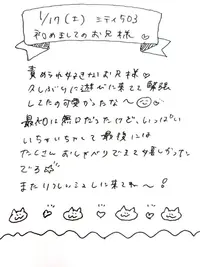 1/17(土) ミティ503
初めましてのお兄様
責められ好きなお兄様♡
久しぶりに遊びに来てて緊張
してたの可愛かったな〜
最初は無口だったけど、いっぱい
いちゃいちゃして最後には
たくさんおしゃべりできて嬉しかった
でる☆
またりつしぃこしに来てね〜!